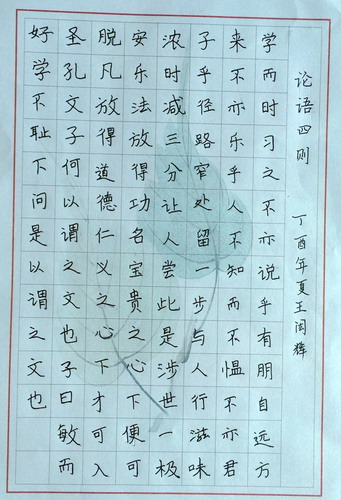 论语四则
丁酉年夏王闰辉
学而时习之不亦说乎有朋自远方
来不亦乐乎人不知而不愠不亦君
子乎径路窄处留一步与人行滋味
浓时减三分让人尝此是涉世一极
安乐法放得功名宝贵之心下便可
脱凡放得道德仁义之心下才可入
圣孔文子何以谓之文也子曰敏而
好学不耻下问是以谓之文也